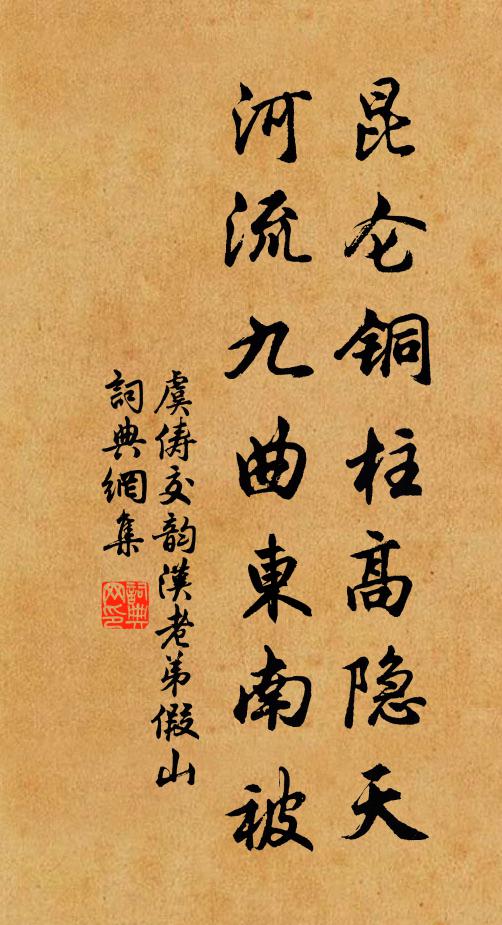 昆仑铜柱高隐天
河流九曲東南被
虞俦次韵漢老弟假山
詞典網集
詞典网印